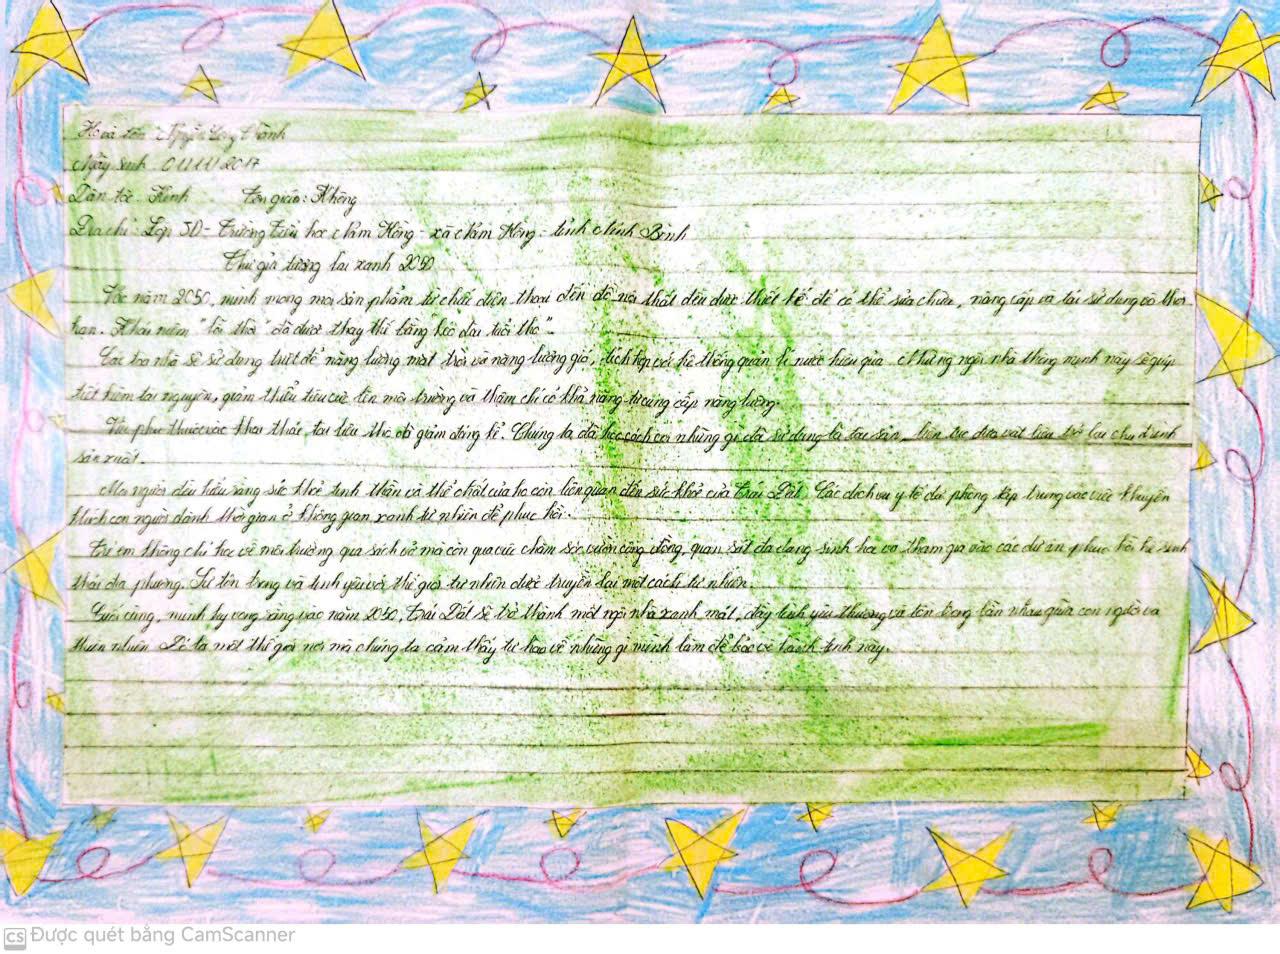 Họ và tên Nguyễn Long Thành
Ngày sinh 01/11/2017
Dân tộc Kinh Tôn giáo: Không
Địa chỉ: Lớp 3D - Trường Tiểu học - xã - tỉnh Ninh Bình
Thư gửi tương lai xanh 2050
Vào năm 2050, mình mong mọi sản phẩm từ chiếc điện thoại đến đồ nội thất đều được thiết kế để có thể sửa chữa, nâng cấp và tái sử dụng vô thời
hạn. Khái niệm "lỗi thời" đã được thay thế bằng "kéo dài tuổi thọ".
Các toà nhà sẽ sử dụng triệt để năng lượng mặt trời và năng lượng gió, tích hợp với hệ thống quản lí nước hiệu quả. Những ngôi nhà thông minh này sẽ giúp
tiết kiệm tài nguyên, giảm thiểu tiêu cực lên môi trường và thậm chí có khả năng tự cung cấp năng lượng.
phụ thuộc vào khai thác, tiêu thụ đã giảm đáng kể. Chúng ta đã học cách coi những gì đã sử dụng là tài sản, liên tục đưa vật liệu trở lại chu trình
sản xuất.
Mọi người đều hiểu rằng sức khoẻ tinh thần và thể chất của họ còn liên quan đến sức khoẻ của Trái Đất. Các dịch vụ y tế dự phòng tập trung vào việc khuyến
khích con người dành thời gian ở không gian xanh tự nhiên để phục hồi.
Trẻ em không chỉ học về môi trường qua sách vở mà còn qua việc chăm sóc vườn cộng đồng, quan sát đa dạng sinh học và tham gia vào các dự án phục hồi hệ sinh
thái địa phương. Sự tôn trọng và tình yêu với thế giới tự nhiên được truyền lại một cách tự nhiên.
Cuối cùng, mình hy vọng rằng vào năm 2050, Trái Đất sẽ trở thành một ngôi nhà xanh mát, đầy tình yêu thương và tôn trọng lẫn nhau giữa con người và
thiên nhiên. Đó là một thế giới nơi mà chúng ta cảm thấy tự hào về những gì mình làm để bảo vệ hành tinh này.
CS Được quét bằng CamScanner